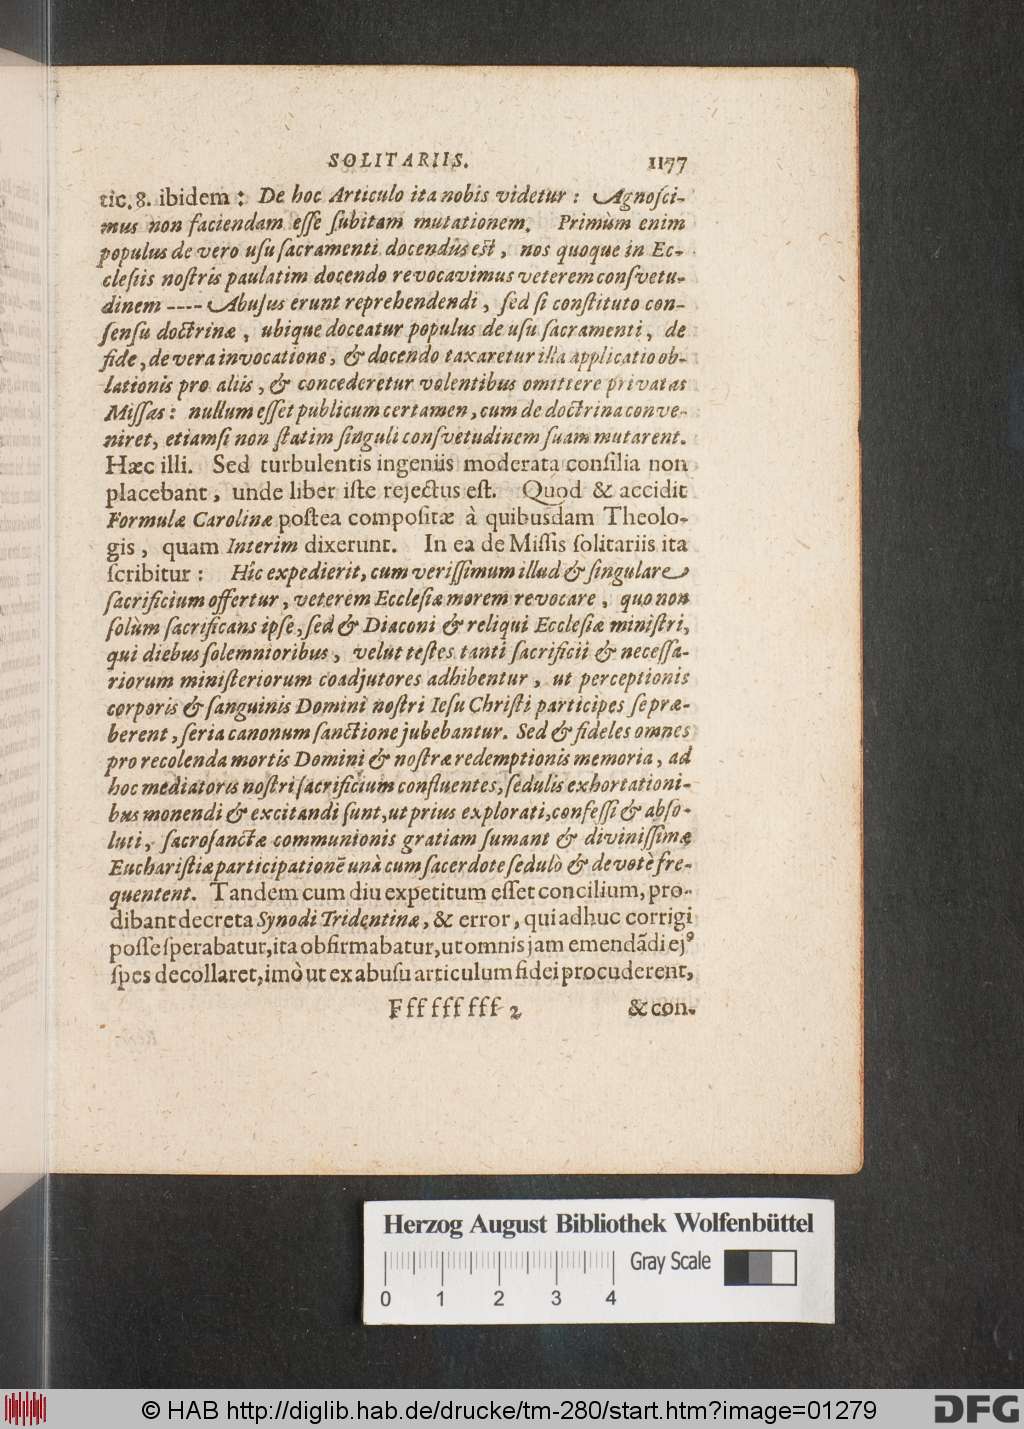 SOLITARIIS. 1177
tic. 8. ibidem: De hoc Articulo ita nobis videtur: Agnoſci-
mus non faciendam eſſe ſubitam mutationem. Primùm enim
populus de vero uſu ſacramenti docendus eſt, nos quoque in Ec-
cleſiis noſtris paulatim docendo revocavimus veterem conſvetu-
dinem ---- Abuſus erunt reprehendendi, ſed ſi conſtituto con-
ſenſu doctrinæ, ubique doceatur populus de uſu ſacramenti, de
fide, de vera invocatione, & docendo taxaretur illa applicatio ob-
lationis pro aliis, & concederetur volentibus omittere privatas
Miſſas: nullum eſſet publicum certamen, cum de doctrina conve-
niret, etiamſi non ſtatim ſinguli conſvetudinem ſuam mutarent.
Hæc illi. Sed turbulentis ingeniis moderata conſilia non
placebant, unde liber iſte rejectus eſt. Quod & accidit
Formulæ Carolinæ poſtea compoſitæ à quibusdam Theolo-
gis, quam Interim dixerunt. In ea de Miſſis ſolitariis ita
ſcribitur: Hîc expedierit, cum veriſſimum illud & ſingulare
ſacrificium offertur, veterem Eccleſiæ morem revocare, quo non
ſolùm ſacrificans ipſe, ſed & Diaconi & reliqui Eccleſiæ miniſtri,
qui diebus ſolemnioribus, velut teſtes tanti ſacrificii & neceſſa-
riorum miniſteriorum coadjutores adhibentur, ut perceptionis
corporis & ſanguinis Domini noſtri Ieſu Chriſti participes ſe præ-
berent, ſeria canonum ſanctione jubebantur. Sed & fideles omnes
pro recolenda mortis Domini & noſtræ redemptionis memoria, ad
hoc mediatoris noſtri ſacrificium confluentes, ſedulis exhortationi-
bus monendi & excitandi ſunt, ut prius explorati, confeſſi & abſo-
luti, ſacroſanctæ communionis gratiam ſumant & diviniſſimæ
Euchariſtiæ participationē unà cum ſacerdote ſedulò & devotè fre-
quentent. Tandem cum diu expetitum eſſet concilium, pro-
dibant decreta Synodi Tridentinæ, & error, qui adhuc corrigi
poſſe ſperabatur, ita obfirmabatur, ut omnis jam emendãdi ejꝰ
ſpes decollaret, imò ut ex abuſu articulum fidei procuderent,
Fff fff fff 2 & con-
Herzog August Bibliothek Wolfenbüttel
Gray Scale
0 1 2 3 4
© HAB http://diglib.hab.de/drucke/tm-280/start.htm?image=01279
DFG